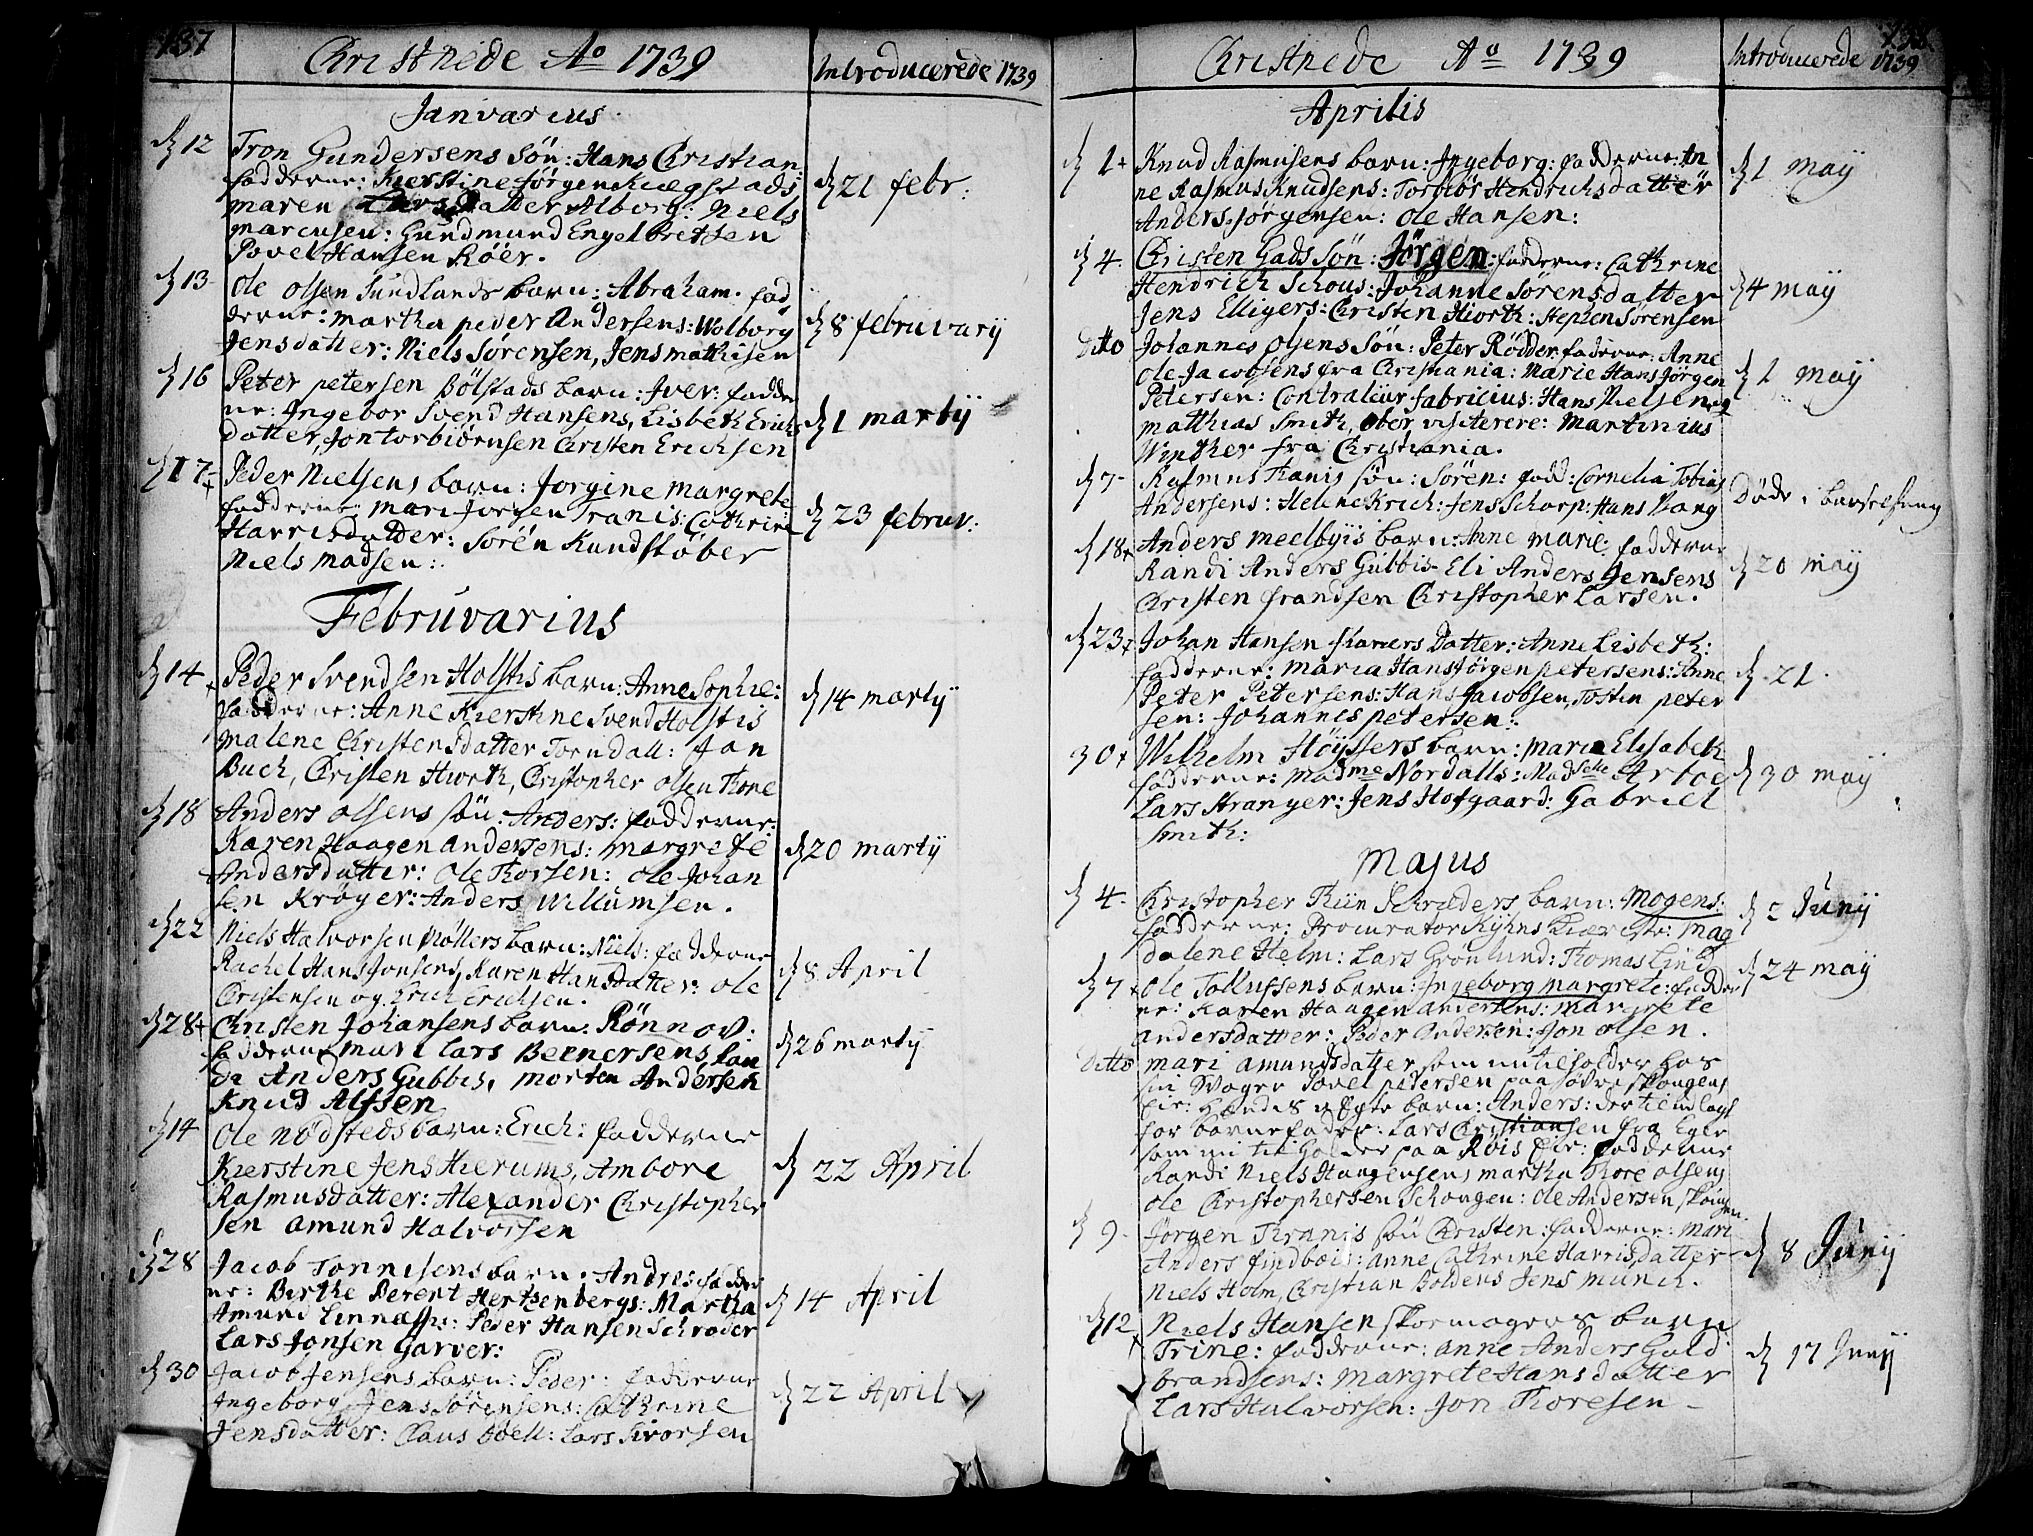 137
Christnede Ao 1739
Introducerede 1739
Janvarius
d 12 Tron Gundersens Søn: Hans Christian
fadderne: Kierstine Jørgen
maren datter Alborg: Niels
marcusen: Gundmund Engelbretsen
Povel Hansen Röer.
d 21 febr.
d 13 Ole Olsen Sundlands barn: Abraham. fad
derne: martha peder Andersens: Wolborg
Jensdatter: Niels Sörensen, Jens mathisen
d 8 februvarij
d 16 Peter petersen Bölstads barn: Iver: fadde
ne: Ingebor Svend Hansens, Lisbeth Erichs
datter, Jon torbiörnsen Christen Erichsen
d 1 martij
d 17 Peder Nielsens barn: Jorgine Margrete
fadderne: mari Jörgen Tranis: Cathrine
Harrisdatter: Sören Kundstöber
Niels madsen:
d 23 februv:
Februvarius
d 14 Peder Svendsen Holstis barn: Anne Sophie:
fadderne: Anne Kierstine Svend Holstis
Malene Christensdatter Torndall: Jan
Buch, Christen Hiorth, Christopher Olsen Thone
d 14 martij
d 18 Anders Olsens søn: Anders: fadderne:
Karen Haagen Andersens: margrete
Andersdatter: Ole Thorsen: Ole Johan
sen Krøyer: Anders Willumsen.
d 20 martij
d 22 Niels Halvorsen Møllers barn: Niels: fadderne
Rachel Hans Jonsens, Karen Hansdatter: Ole
Christensen og Erich Erichsen.
d 8 April
d 28 Christen Johansens barn: Rönnov:
fadderne mari Lars Bernersens, Ran
di Anders Gubbis, morten Andersen
Knud Alfsen
d 26 martij
d 14 Ole Nödsteds barn: Erich: fadderne
Kierstine Jens Hierums, Ambore
Rasmusdatter: Alexander Christopher
sen Amund Halvorsen
d 22 April
d 28 Jacob Tonnisens barn: Andres: fadder
ne: Birthe Berent Hertzenbergs: Martha
Amund Peder Hansen Schroder
Lars Jonsen Garver:
d 14 April
d 30 Jacob Jensens barn: Peder: fadderne
Ingeborg Jens Sörensens: Cathrine
Jensdatter: Claus Boell: Lars Sivorsen
d 22 April
138
Christnede Ao 1739
Introducerede 1739
Aprilis
d 1 Knud Rasmusens barn: Ingeborg: fadderne: An
ne Rasmus Knudsens: Torbiör Hendrichsdatter
Anders Jörgensen: Ole Hansen:
d 1 maij
d 4. Christen Gads Søn: Jörgen: fadderne: Cathrine
Hendrich Schous: Johanne Sörensdatter
Jens Elligers: Christen Hiorth: Stephen Sörensen
d 4 maij
Ditto Johannes Olsens Søn: Peter Rödder: fadderne: Anne
Ole Jacobsens fra Christiania: Marie Hans Jörgen
Petersen: Contraleur fabricius: Hans Nielsen og
matthias Smith, Ober visiterere: Martinius
Winther fra Christiania.
d 1 maij
d 7 Rasmus Thanis søn: Sören: fadd: Cornelia Tobias
Andersens: Helene Krich: Jens Scharp: Hans Vang
Døde i barselseng
d 18 Anders meelbyis barn: Anne marie, fadderne
Randi Anders Gubbis Eli Anders Jensens
Christen frandsen Christopher Larsen.
d 20 maij
d 23 Johan Hansen Datter: Anne Lisbeth:
fadderne: maria Hans Jörgen petersens: Anne
Peter Petersens: Hans Jacobsen, Tosten peter
sen: Johannes petersen:
d 21.
30 Wilhelm Höyssers barn: maria Elisabeth
fadderne: Madme Nordalls: Madselle Arboe
Lars Stranger: Jens Hofgaard: Gabriel
Smith:
d 30 maij
Majus
d 4. Christopher Thun Schrøders barn: Mogens:
fadderne: Procurator Kyhns Kiæreste: Mag
dalene Helm: Lars Grönlund: Thomas Lind
d 2 Junij
d 7 Ole Tollufsens barn: Ingeborg Margrete: fadder
ne: Karen Haagen Andersens: Margrete
Andersdatter: Peder Andersen: Jon Olsen.
d 24 maij
Ditto mari Amundsdatter som nu tilholder hos
sin Svoger Povel petersen paa søvre skougens
Eir: hendes uEgte barn: Anders: der til udlagt
for barnefader: Lars Christiansen fra Eger
som nu tilholder paa Röis Eir: fadderne
Randi Niels Haagensens, martha Thore Olsens
Ole Christophersen Schougen: Ole Andersen skougen.
d 9. Jörgen Tranis søn Christen: fadderne: Mari
Anders findboe: Anne Cathrine Harrisdatter
Niels Holm, Christian Boldens Jens munch.
d 8 Junij
d 12 Niels Hansen skoemagers barn
Trine: fadderne: anne Anders Guld
brandsens: Margrete Hansdatter
Lars Halvorsen: Jon Thoresen
d 17 Junij